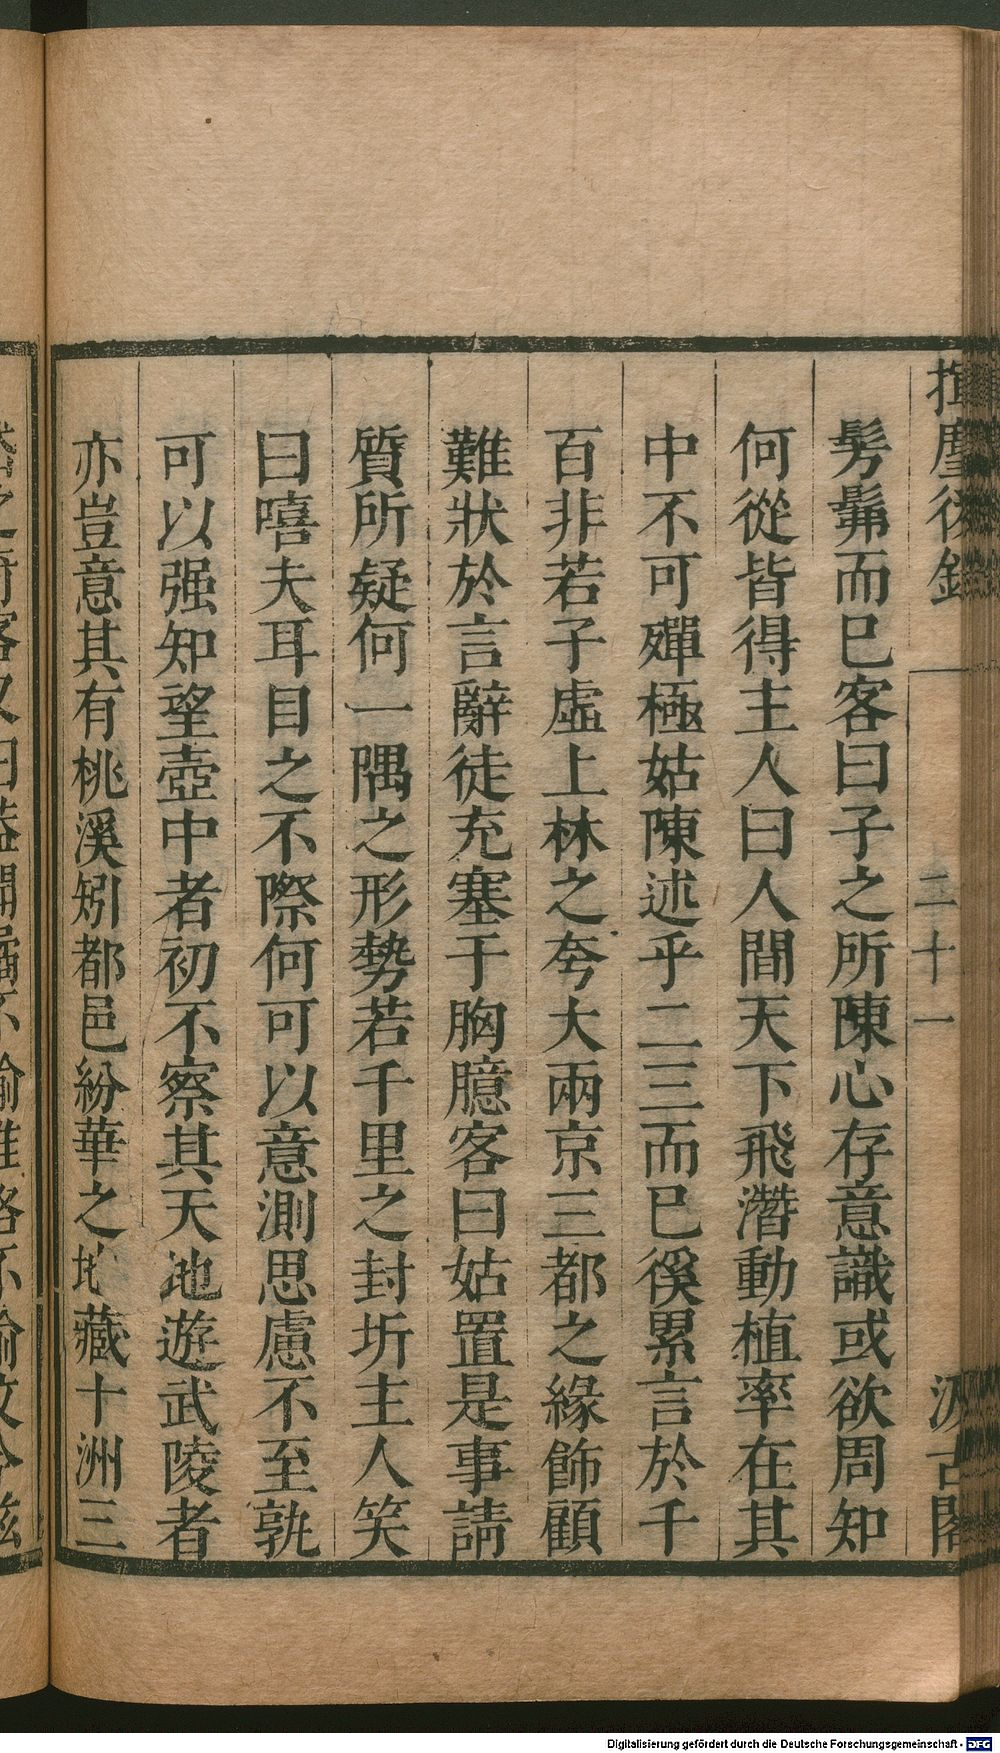 揮麈後錄
二十一
汲古閣
髣髴而巳客曰子之所陳心存意識或欲周知
何從皆得主人曰人間天下飛潛動植率在其
中不可殫極姑陳述乎二三而巳徯累言於千
百非若子虛上林之夸大兩京三都之緣飾顧
難狀於言辭徒充塞于胸臆客曰姑置是事請
質所疑何一隅之形勢若千里之封圻主人笑
曰嘻夫耳目之不際何可以意測思慮不至孰
可以强知望壺中者初不察其天地遊武陵者
亦豈意其有桃溪矧都邑紛華之地藏十洲三
Digitalisierung gefördert durch die Deutsche Forschungsgemeinschaft - DFG